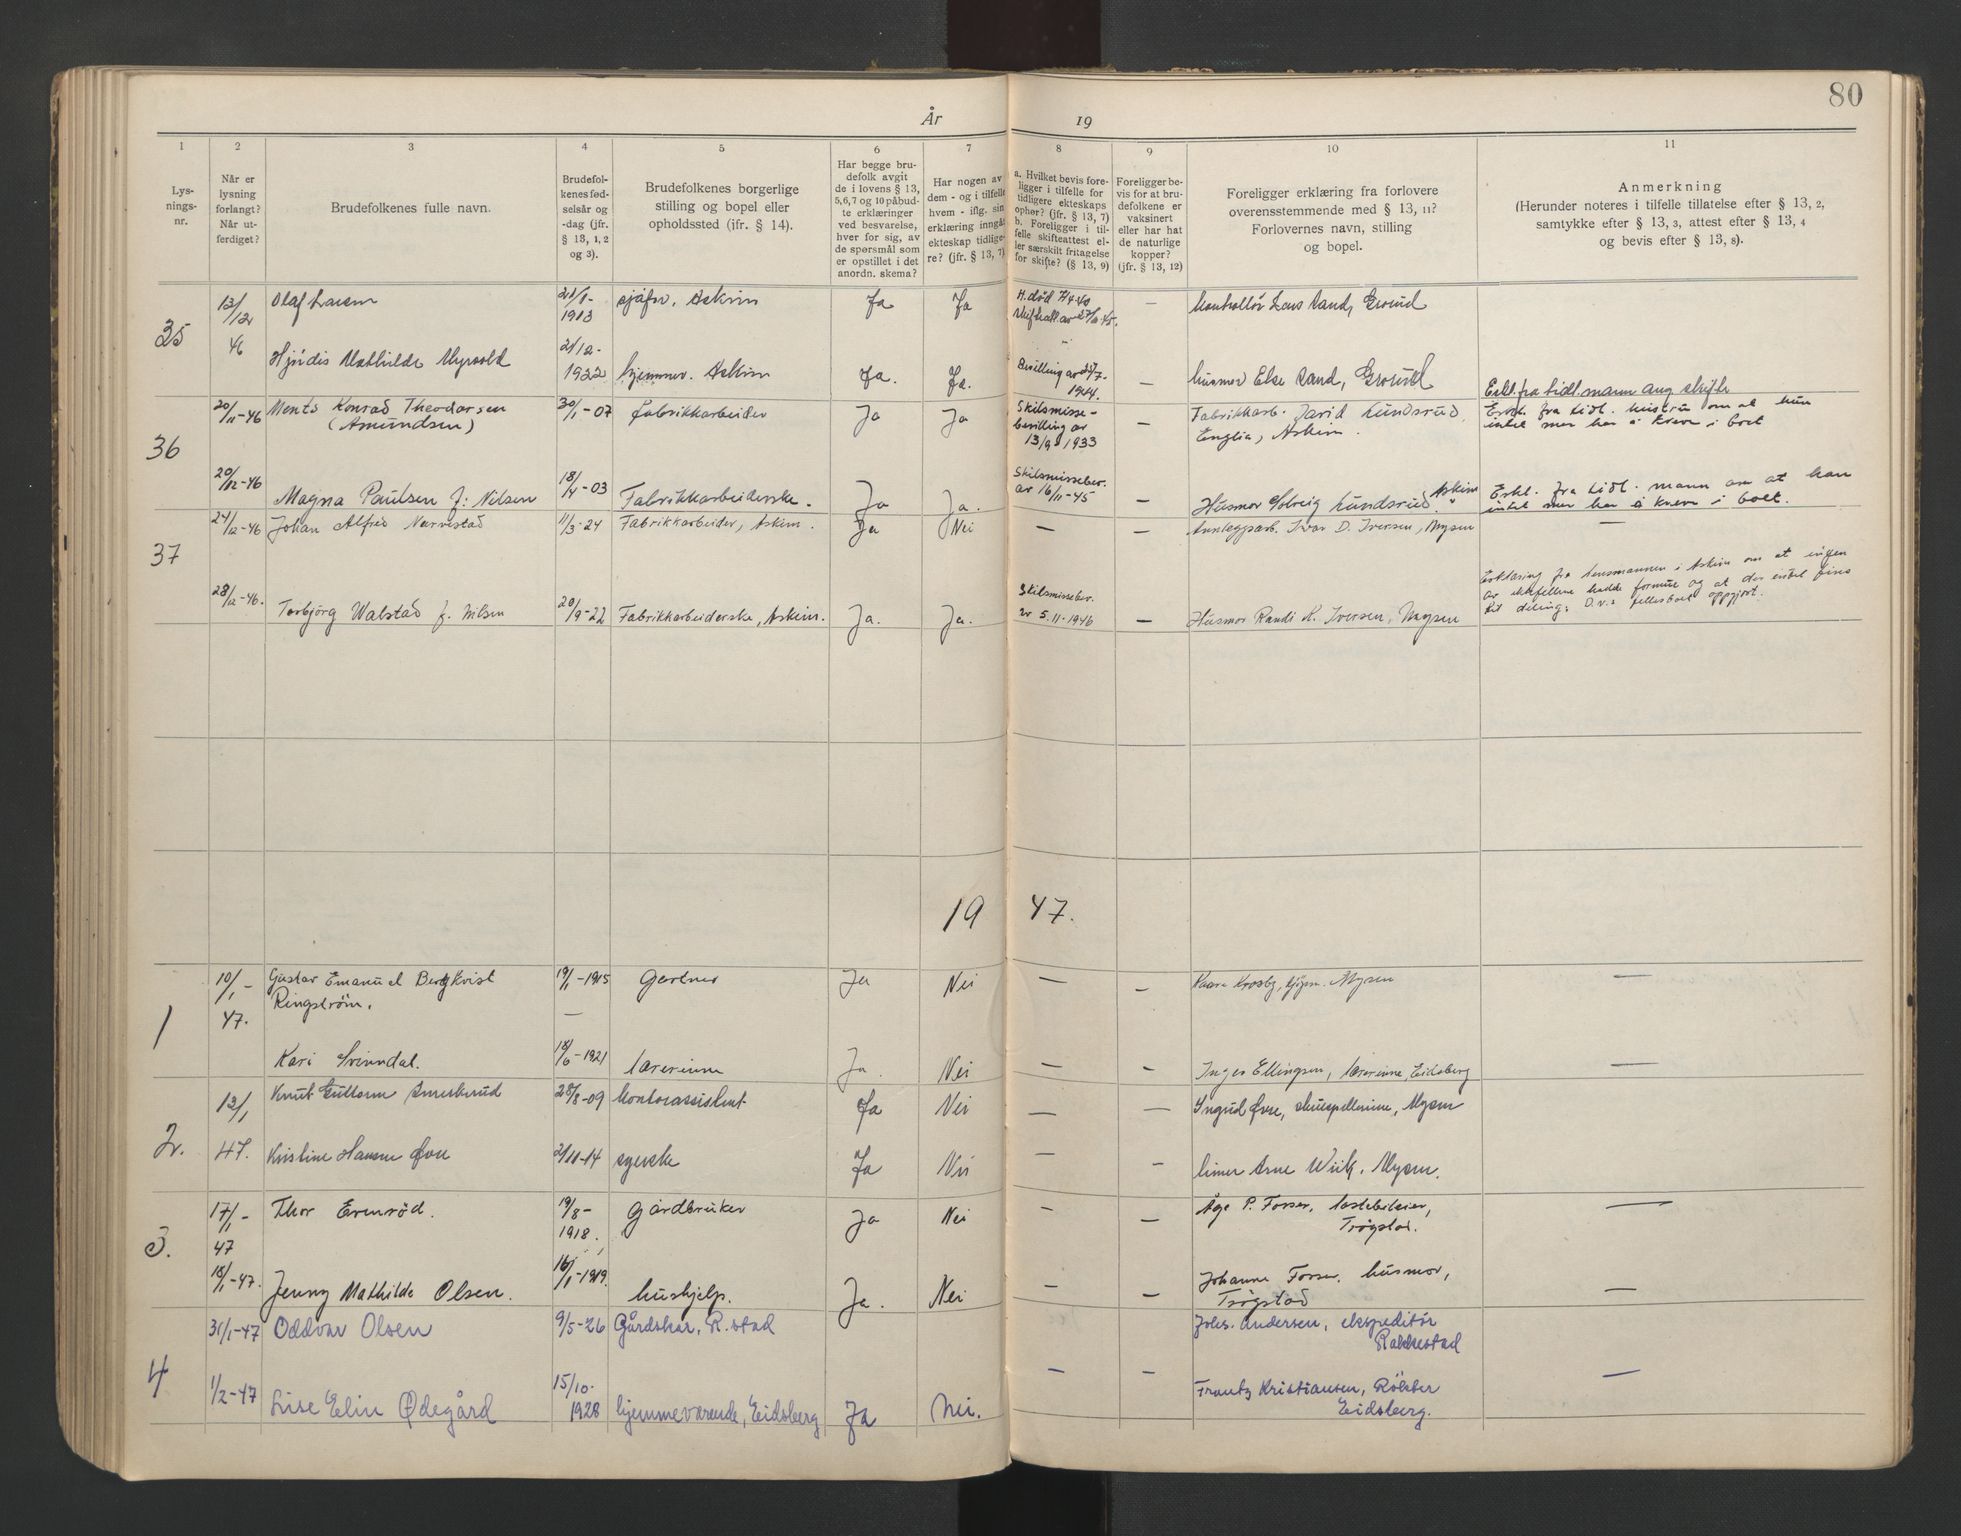 80
År 19
1 2 3 4 5 6 7 8 9 10 11
Lys-
nings-
nr.
Når er
lysning
forlangt?
Når ut-
ferdiget?
Brudefolkenes fulle navn.
Brudefol-
kenes fød-
selsår og
-dag (jfr.
§ 13, 1, 2
og 3).
Brudefolkenes borgerlige
stilling og bopel eller
opholdssted (ifr. § 14).
Har begge bru-
defolk avgit
de i lovens § 13,
5,6,7 og 10 påbud-
te erklæringer
ved besvarelse,
hver for sig, av
de spørsmål som
er opstillet i det
anordn. skema?
Har nogen av
dem - og i tilfelle
hvem - iflg. sin
erklæring inngåt
ekteskap tidlige-
re? (jfr. § 13, 7)
a. Hvilket bevis fore-
ligger i tilfelle for
tidligere ekteskaps
ophør? (jfr. § 13, 7)
b. Foreligger i til-
felle skifteattest el-
ler særskilt fritagelse
for skifte? (§ 13, 9)
Foreligger be-
vis for at bru-
defolkene er
vaksinert
eller har hat
de naturlige
kopper?
(jfr. § 13, 12)
Foreligger erklæring fra forlovere
overensstemmende med § 13, 11?
Forlovernes navn, stilling
og bopel.
Anmerkning
(Herunder noteres i tilfelle tillatelse efter § 13, 2,
samtykke efter § 13, 3, attest efter § 13, 4
og bevis efter § 13, 8).
35
13/12 46
Olaf Larsen
21/1-1913
sjåfør, Askim
Ja
Ja
H. død 7/4 40
–
Kontrollør Lars Sand, Grorud
Hjørdis Mathilde Myrvold
21/12-1922
hjemmev. Askim
Ja.
Ja.
Bevilling av 7-1944.
–
husmor Else Sand, Grorud
Erkl. fra tidl. mann ang. skifte
36
20/11-46
Ments Konrad Theodorsen
(Amundsen)
30/1-07
fabrikkarbeider
Ja
Ja
Skilsmisse-
bevilling av
13/9 1933
–
Fabrikkarb. Jarid Lundsrud
Englia, Askim.
Erkl. fra tidl. hustru om at hun
intet mer har å kreve i boet
20/12-46
Magna Paulsen f: Nilsen
18/4-03
Fabrikkarbeiderske.
Ja
Ja.
Skilsmissebev.
av 16/11-45
–
Husmor Solveig Lundsrud, Askim
Erkl. fra tidl. mann om at han
intet mer har å kreve i boet.
37
24/12-46
Johan Alfred Narvestad
11/3-24
Fabrikkarbeider, Askim.
Ja
Nei
–
–
Anleggsarb. Ivar D. Iversen, Mysen
–
28/12-46.
Torbjörg Walstad f. Nilsen
20/9-22
Fabrikkarbeiderske, Askim.
Ja.
Ja.
Skilsmissebev.
av 5.11-1946
–
Husmor Randi K. Iversen, Mysen
Erklæring fra lensmannen i Askim om at ingen
av ektefellene hadde formue og at der intet fins
til deling; D.v.s fellesboet oppgjort.
19 47.
1
10/1-47.
Gustav Emanuel Bergkvist
Ringström.
19/1-1915
Gartner
Ja
Nei
–
–
Kaare Krosby, kjøpm. Mysen
–
Kari Svinndal.
18/6-1921
lærerinne
Ja.
Nei
–
–
Inger Ellingsen, lærerinne, Eidsberg
–
2.
13/1 47.
Knut Guttorm Smerkerud
28/8-09
kontorassistent
Ja
Nei
–
–
Ingrid Øvre, Mysen
Kristine Hansine Øvre
2/11-14
syerske
Ja
Nei
–
–
Arne Wiik, Mysen.
3.
17/1-47
Thor Ermrød.
19/8-1918.
Gårdbruker
Ja
Nei
–
–
Åge P. Forser, lastebileier,
Trøgstad.
–
18/1-47.
Jenny Mathilde Olsen.
16/1-1919.
hushjelp.
Ja.
Nei
–
–
Johanne Forser, husmor,
Trøgstad
–
4
31/1-47
Oddvar Olsen
9/5-26
Gårdskar, R.stad
Johs. Andersen, ekspeditør
Rakkestad
1/2-47
Lise Elin Ødegård
15/10-1928
hjemmeværende, Eidsberg
Ja
Nei.
–
–
Frantz Kristiansen, Røkter
Eidsberg.
–